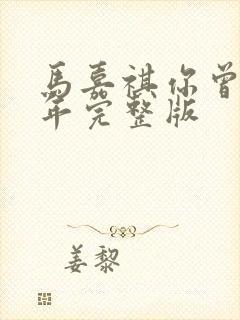 馬嘉祺你曾
年完整版
姜黎